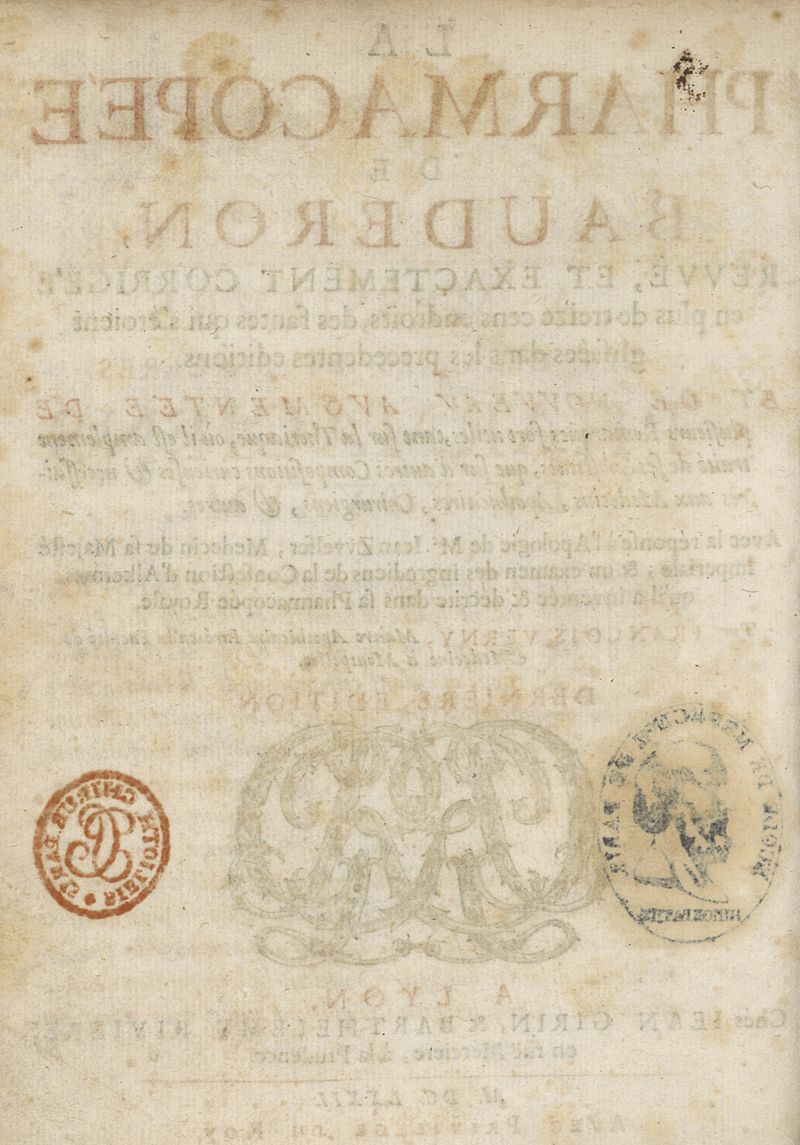 LA
PHARMACOPEE
DE
BAUDERON,
REVVË, ET EXACTEMENT CORRIGÉE
en plus de treize cens endroits, des fautes qui s'étoient
glissées dans les precedentes editions.
ET DE NOVVEAV AVGMENTÉE DE
plusieurs Remarques fort utiles, tant sur la Theriaque, où il est amplement
traité de, que sur d'autres Compositions curieuses & necessai-
res aux Medecins, Apothicaires, Chirurgiens, & autres.
Avec la réponse à l'Apologie de Mr. Iean Zvvelfer, Medecin de sa Majesté
Imperiale; & un examen des ingrediens de la Confection d'Alkermes
qu'il a inventée & décrite dans sa Pharmacopée Royale.
Par FRANÇOIS VERNY, Maistre Apoticaire
Medecine à Montpellier.
DERNIERE EDITION
BIBLIOTH CHIR DE PARIS
MEDECINE DE PARIS
A LYON,
Chés IEAN GIRIN, & BARTHELEMY RIVIERE,
en ruë Merciere, à la Prudence.
M. DC. LXXII.
AVEC PRIVILEGE DU ROY.